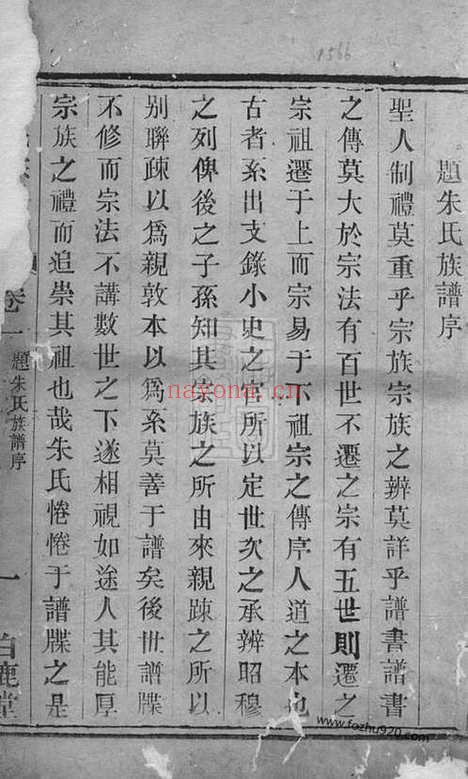 1566
題朱氏族譜序
聖人制禮莫重乎宗族宗族之辨莫詳乎譜書譜書
之傳莫大於宗法有百世不遷之宗有五世則遷之
宗祖遷于上而宗易于下祖宗之傳序人道之本也
古者系出支錄小史之官所以定世次之承辨昭穆
之列俾後之子孫知其傢族之所由來親踈之所以
別聯疎以爲親敦本以爲系莫善于譜矣後世譜牒
不修而宗法不講數世之下遂相視如途人其能厚
宗族之禮而追崇其祖也哉朱氏惓惓于譜牒之是
卷一
題朱氏族譜序
一
白鹿堂
nayona.cn
www.fozhu920.com